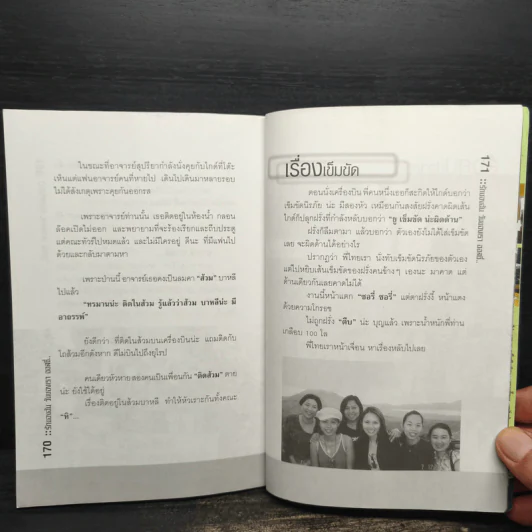 ในขณะที่อาจารย์สุปรียากำลังนั่งคุยกับไกด์ที่โต๊ะ
เห็นแต่แฟนอาจารย์คนที่หายไป เดินไปเดินมาหลายรอบ
ไม่ได้สังเกตุเพราะคุยกันออกรส
เพราะอาจารย์ท่านนั้น เธอติดอยู่ในห้องน้ำ กลอน
ล็อคเปิดไม่ออก และพยายามที่จะร้องเรียกและถีบประตู
แต่คณะทัวร์ไปหมดแล้ว และไม่มีใครอยู่ ดีนะ ที่มีแฟนไป
ด้วยและกลับมาตามหา
เพราะป่านนี้ อาจารย์เธอคงเป็นลมคา "ส้วม" บาหลี
ไปแล้ว
"ทรมานน่ะ ติดในส้วม รู้แล้วว่าส้วม บาหลีน่ะ มี
อาถรรพ์"
ยังดีกว่า ที่ติดในส้วมบนเครื่องบินน่ะ แถมติดกับ
โถส้วมอีกต่างหาก ตีไม่บินไปถึงยุโรป
คนเดียวหัวหาย สองคนเป็นเพื่อนกัน "ติดส้วม" ตาย
น่ะ ยังใช้ได้อยู่
เรื่องติดอยู่ในส้วมบาหลี ทำให้หัวเราะกันทั้งคณะ
"หึ"...
170
เรื่องเข็มขัด
ตอนนั่งเครื่องบิน พี่คนหนึ่งเธอก็สะกิดให้ไกด์บอกว่า
เข็มขัดนิรภัย น่ะ มีสองหัว เหมือนกันสงสัยฝรั่งคาดผิดเส้น
ไกด์ก็ปลุกฝรั่งที่กำลังหลับบอกว่า "ยู เข็มขัด น่ะผิดด้าน"
ฝรั่งก็ลืมตามา แล้วบอกว่า ตัวเองยังไม่ได้ใส่เข็มขัด
เลย จะผิดด้านได้อย่างไร
ปรากฏว่า พี่ไทยเรา นั่งทับเข็มขัดนิรภัยของตัวเอง
แต่ไปหยิบเส้นเข็มขัดของฝรั่งคนข้างๆ เองนะ มาคาด แต่
ด้านเดียวกันเลยคาดไม่ได้
งานนี้หน้าแตก "ซอรี่ ซอรี่" แต่ตาฝรั่งงี้ หน้าแดง
ด้วยความโกรธ
ไม่ถูกฝรั่ง "ตืบ" น่ะ บุญแล้ว เพราะน้ำหนักพี่ท่าน
เกือบ 100 โล
พี่ไทยเราหน้าเจื่อน หาเรื่องหลับไปเลย
171